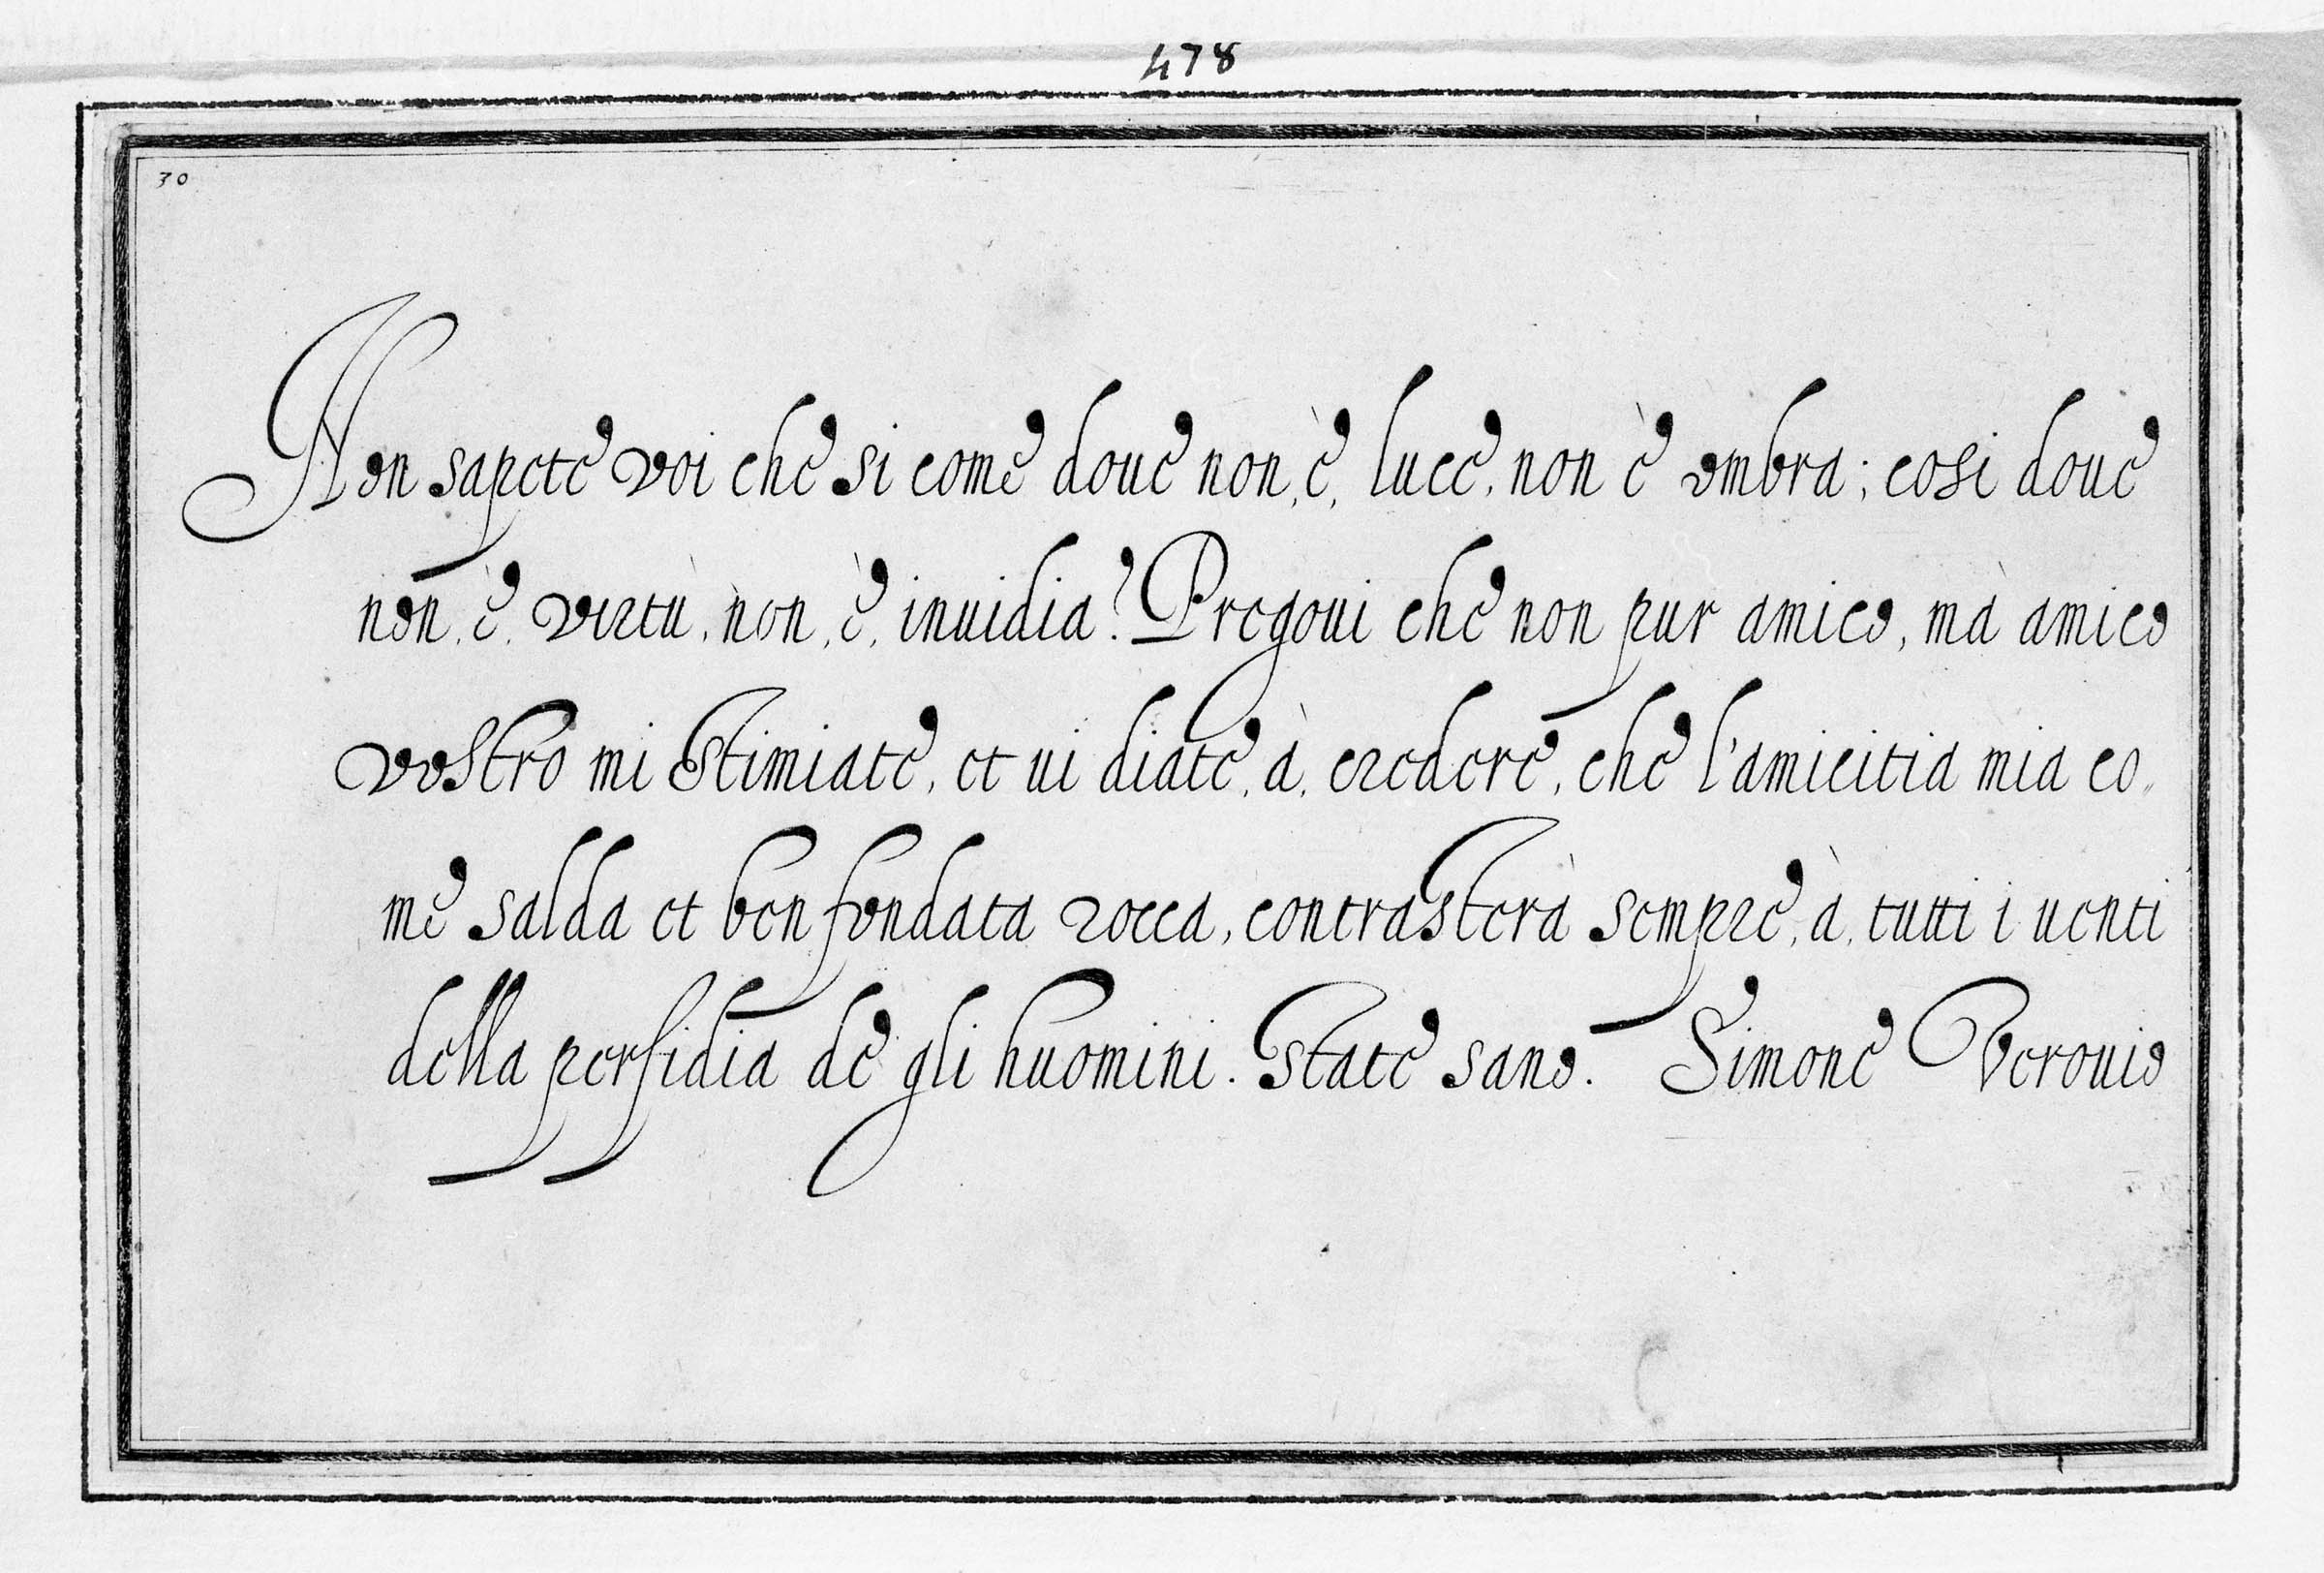 478
30
Non sapete voi che si come doue non, è, luce, non è ombra; cosi doue
non, è, virtù, non, è, inuidia? Pregoui che non pur amico, mà amico
vostro mi stimiate, et ui diate, à, credere, che l'amicitia mia co„
me salda et ben fondata rocca, contrasterà sempre, à, tutti i uenti
della perfidia de gli huomini. State sano. Simone Verouio